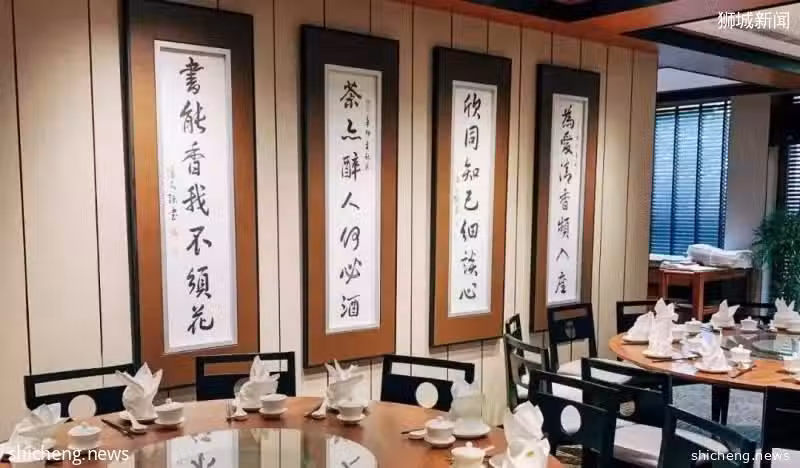 狮城新闻
為愛清香頻入座
欣同知己細談心
茶亦醉人何必酒
書能香我不須花
shicheng.news
shicheng.news